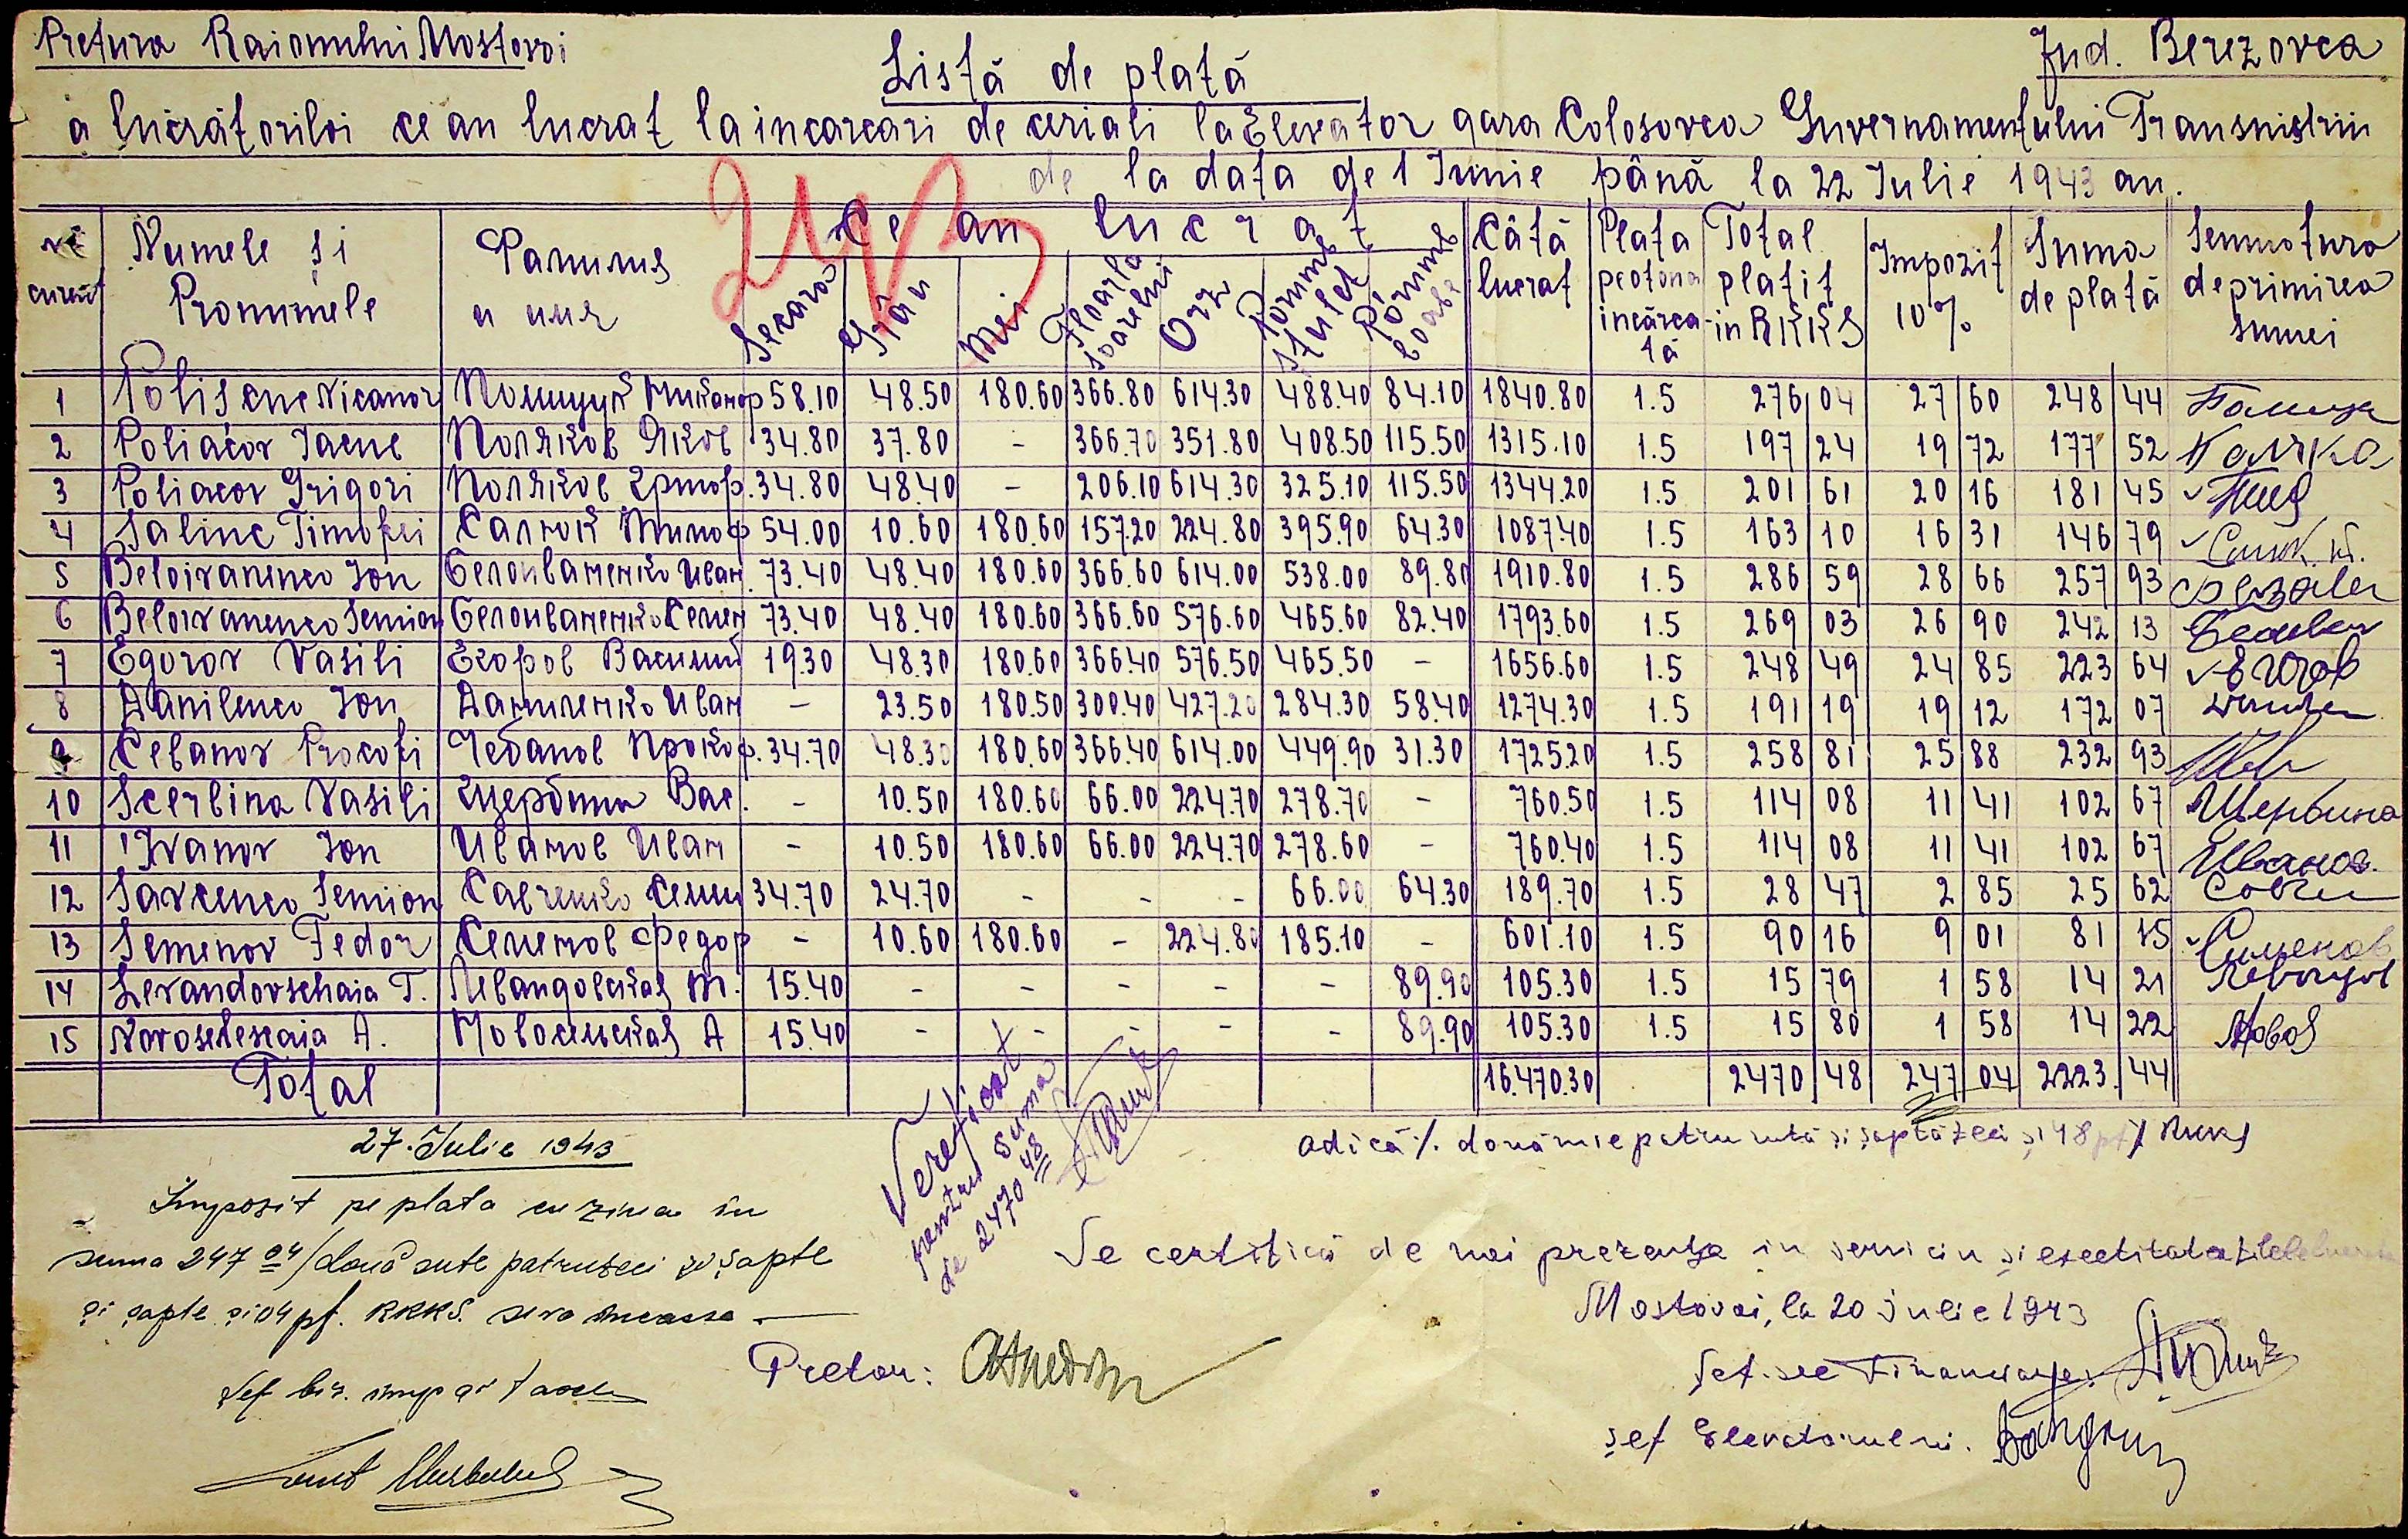 Pretura Raionului Mostovoi
Jud. Berezovca
Listă de plată
a lucrătoriloi ce au lucrat la incarcari de ceriali la Elevator gara Colosovca Guvernamentului Transnistriei
de la data de 1 Iunie până la 22 Iulie 1943 an.
No curent Numele și Pronumele Фамилия и имя Ce au lucrat Câtă lucrat Plata pe tona incărcată Total platit in RKKS Impozit 10% Suma de plată Semnatura de primirea sumei
Secara Grâu Mei Floarla soarelui Orz Porumb știulet Porumb boabe
1 Polisciuc Nicanor Полищук Никанор 58.10 48.50 180.60 366.80 614.30 488.40 84.10 1840.80 1.5 276 04 27 60 248 44
2 Poliacov Iacov Поляков Яков 34.80 37.80 - 366.70 351.80 408.50 115.50 1315.10 1.5 197 24 19 72 177 52
3 Poliacov Grigori Поляков Григор. 34.80 48.40 - 206.10 614.30 325.10 115.50 1344.20 1.5 201 61 20 16 181 45
4 Saliuc Timofei Салюк Тимоф 54.00 10.60 180.60 157.20 224.80 395.90 64.30 1087.40 1.5 163 10 16 31 146 79
5 Beloivanenco Ion Белоиваненко Иван. 73.40 48.40 180.60 366.60 614.00 538.00 89.80 1910.80 1.5 286 59 28 66 257 93
6 Beloivanenco Semion Белоиваненко Семен 73.40 48.40 180.60 366.60 576.60 465.60 82.40 1793.60 1.5 269 03 26 90 242 13
7 Egorov Vasili Егоров Василий 19.30 48.30 180.60 366.40 576.50 465.50 - 1656.60 1.5 248 49 24 85 223 64 Егоров
8 Danilenco Ion Даниленко Иван - 23.50 180.50 300.40 427.20 284.30 58.40 1274.30 1.5 191 19 19 12 172 07
9 Cebanov Procofi Чебанов Прокоф. 34.70 48.30 180.60 366.40 614.00 449.90 31.30 1725.20 1.5 258 81 25 88 232 93
10 Scerbina Vasili Щербина Вас. - 10.50 180.60 66.00 224.70 278.70 - 760.50 1.5 114 08 11 41 102 67 Щербина
11 Ivanov Ion Иванов Иван - 10.50 180.60 66.00 224.70 278.60 - 760.40 1.5 114 08 11 41 102 67 Иванов.
12 Savcenco Semion Савченко Семен 34.70 24.70 - - - 66.00 64.30 189.70 1.5 28 47 2 85 25 62
13 Semenov Fedor Семенов Федор - 10.60 180.60 - 224.80 185.10 - 601.10 1.5 90 16 9 01 81 15 Семенов
14 Levandovschaia T. Левандовская Т. 15.40 - - - - - 89.90 105.30 1.5 15 79 1 58 14 21
15 Novoselescaia A. Новосельская А 15.40 - - - - - 89.90 105.30 1.5 15 80 1 58 14 22 Новос
Total 16.470.30 2470 48 247 04 2223. 44
adică /. două mie patru sută și șapte zeci și 48 pf /. RKKS
Verificat pentru suma de 2470 48
27. Iulie 1943
Imposit pe plata cu ziua în
suma 247 04 /două sute patruzeci și șapte
și șapte și 04 pf. RKKS. se va incassa.—
Șef bir. imp și taxe
Se certifică de noi prezența in serviciu și exectitatea zilele lucrate
Mostovoi, la 20 iulie 1943
Pretor:
Șef. sec Financiare.
șef Elevatorului.